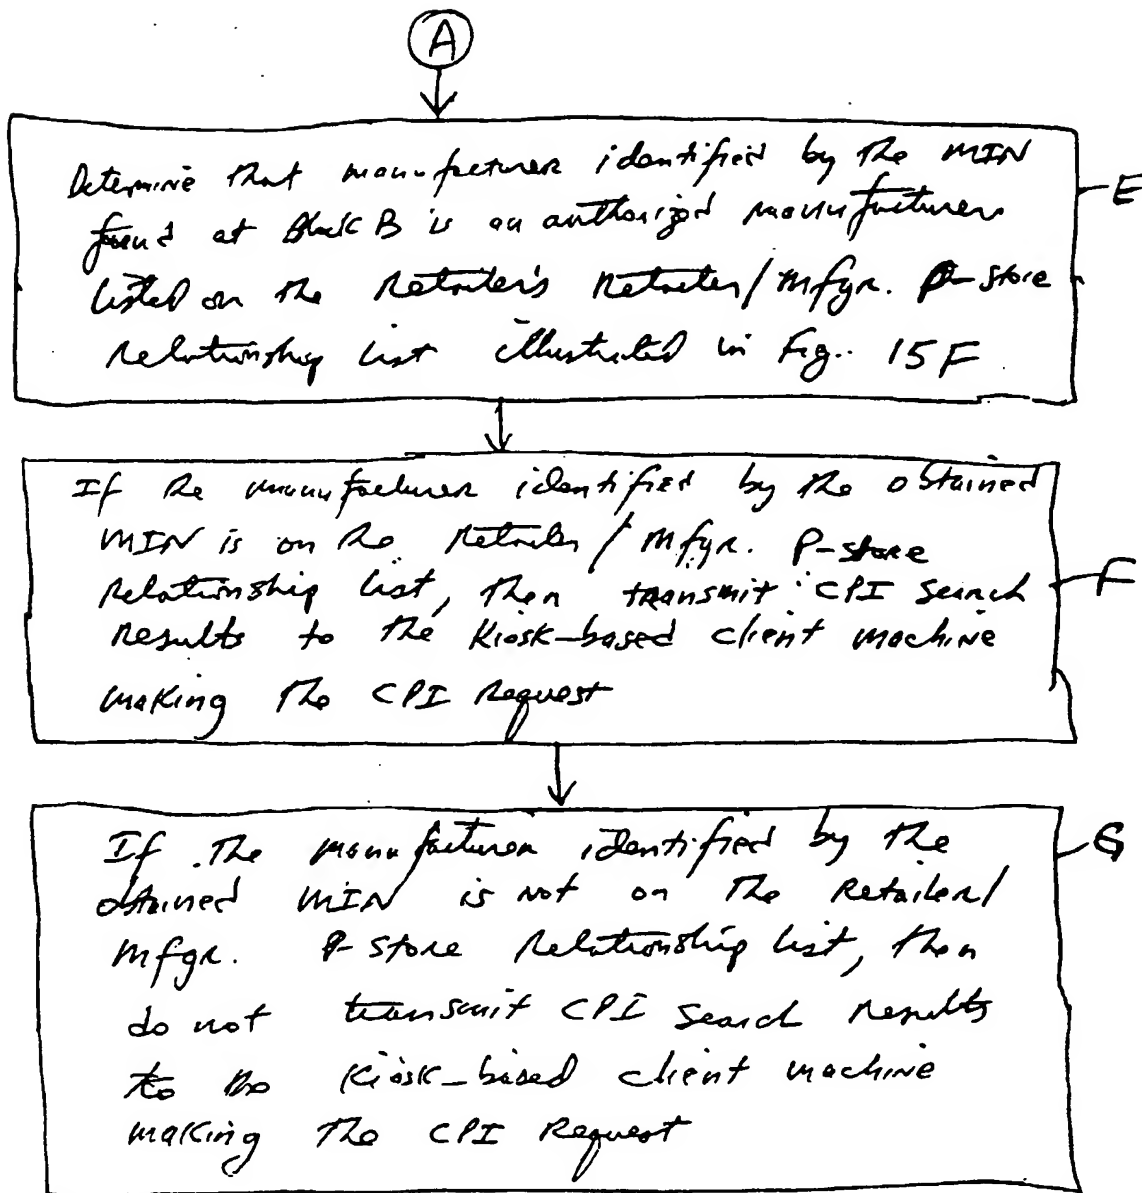 A
Determine that manufacturer identified by the MIN
found at Block B is an authorized manufacturer
listed on the Retailer's Retailer/Mfgr. P-store
relationship list illustrated in Fig. 15F
E
If the manufacturer identified by the obtained
MIN is on the Retailer/Mfgr. P-store
Relationship List, then transmit CPI Search
Results to the Kiosk-based client machine
making the CPI Request
F
If the manufacturer identified by the
obtained MIN is not on the Retailer/
Mfgr. P-store Relationship List, then
do not transmit CPI Search Results
to the Kiosk-based client machine
making the CPI Request
G